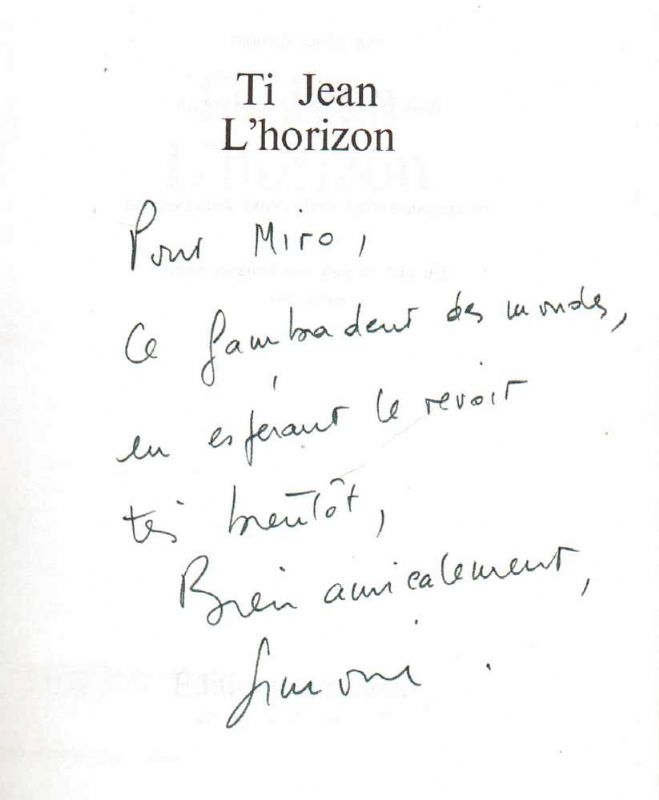 Ti Jean
L'horizon
Pour Miro,
Ce gambadeur des mondes,
en espérant le revoir
très bientôt,
Bien amicalement,
Simone